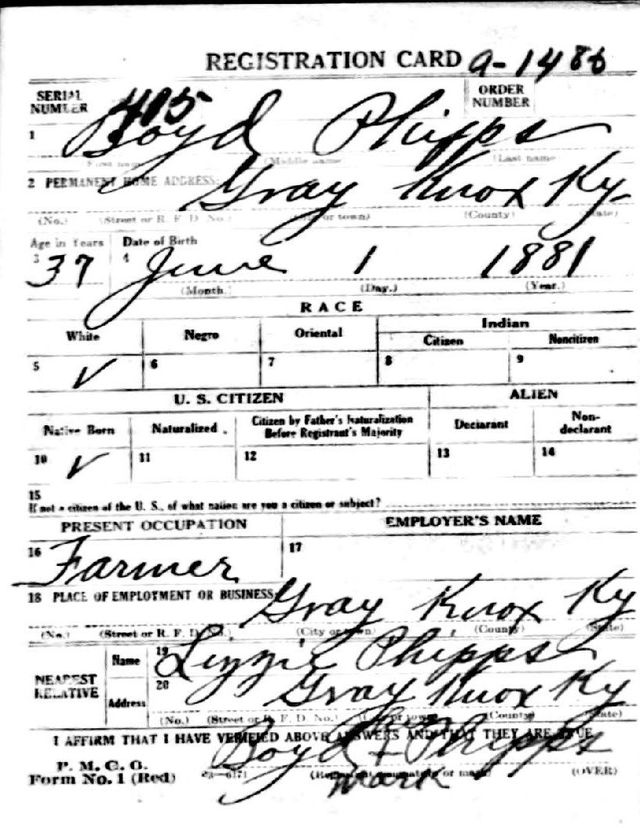 REGISTRATION CARD
SERIAL NUMBER 405 ORDER NUMBER A-1486
1 Boyd Phipps
(First name) (Middle name) (Last name)
2 PERMANENT HOME ADDRESS: Gray Knox Ky
(No.) (Street or R. F. D. No.) (City or town) (County) (State)
Age in Years Date of Birth
3 37 4 June 1 1881
(Month.) (Day.) (Year.)
RACE
White Negro Oriental Indian
Citizen Noncitizen
5 ✓ 6 7 8 9
U. S. CITIZEN ALIEN
Native Born Naturalized. Citizen by Father's Naturalization Before Registrant's Majority Declarant Non-declarant
10 ✓ 11 12 13 14
15
If not a citizen of the U. S., of what nation are you a citizen or subject?
PRESENT OCCUPATION EMPLOYER'S NAME
16 Farmer 17
18 PLACE OF EMPLOYMENT OR BUSINESS: Gray Knox Ky
(No.) (Street or R. F. D. No.) (City or town) (County) (State)
NEAREST RELATIVE
Name 19 Lizzie Phipps
Address 20 Gray Knox Ky
(No.) (Street or R. F. D. No.) (City or town) (County) (State)
I AFFIRM THAT I HAVE VERIFIED ABOVE ANSWERS AND THAT THEY ARE TRUE
Boyd + Phipps
mark
P. M. G. O.
Form No. 1 (Red) (Registrant's signature or mark) (OVER)